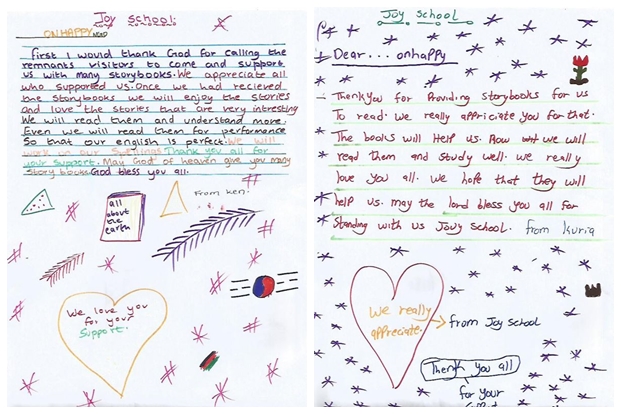 Joy school.
ON HAPPY
First I would thank God for calling the
remnants visitors to come and support
us with many storybooks. We appreciate all
who supported us. Once we had recieved
the storybooks we will enjoy the stories
And love the stories that are very intresting
We will read them and understand more.
Even we will read them for performance
So that our english is perfect. We will
work on our Thank you all for
your support. May God of heaven give you many
story books God bless you all.
From ken.
all
about
the
earth
We love you
for your
Support.
Joy School
Dear... onhappy
Thankyou for Providing storybooks for us
To read. We really appriciate you for that.
The books will Help us. Now we will
read them and study well. we really
love you all. We hope that they will
help us. may the lord bless you all for
Standing with us Jouy School. from kuria
We really
appreciate.
from Joy school
Thank you all
for your